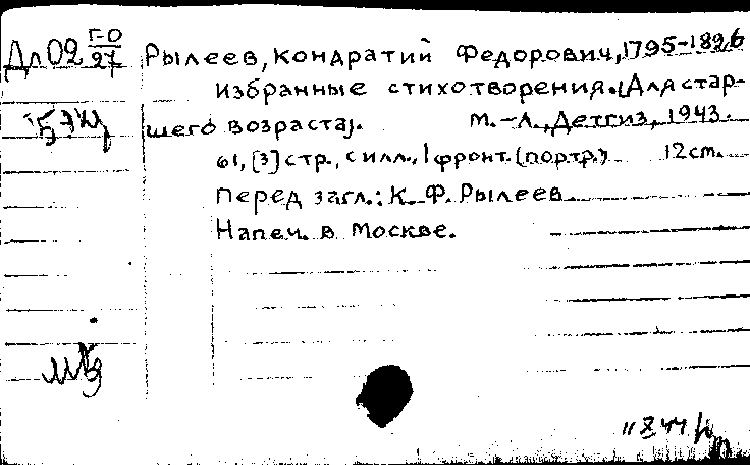 Дл 02 Г-0
27
Рылеев, Кондратий Федорович, 1795-1826
избранные стихотворения. [Для стар-
шего возраста].
М.-Л., Детгиз, 1943.
61, [3] стр., с илл., 1 фронт. (портр.) 12 cm.
Перед загл.: К. Ф. Рылеев
Напеч. в Москве.